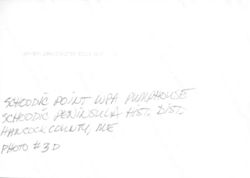 SCHOODIC POINT WPA PUMPHOUSE
SCHOODIC PENINSULA HIST. DIST.
HANCOCK COUNTY, ME
PHOTO # 3 D